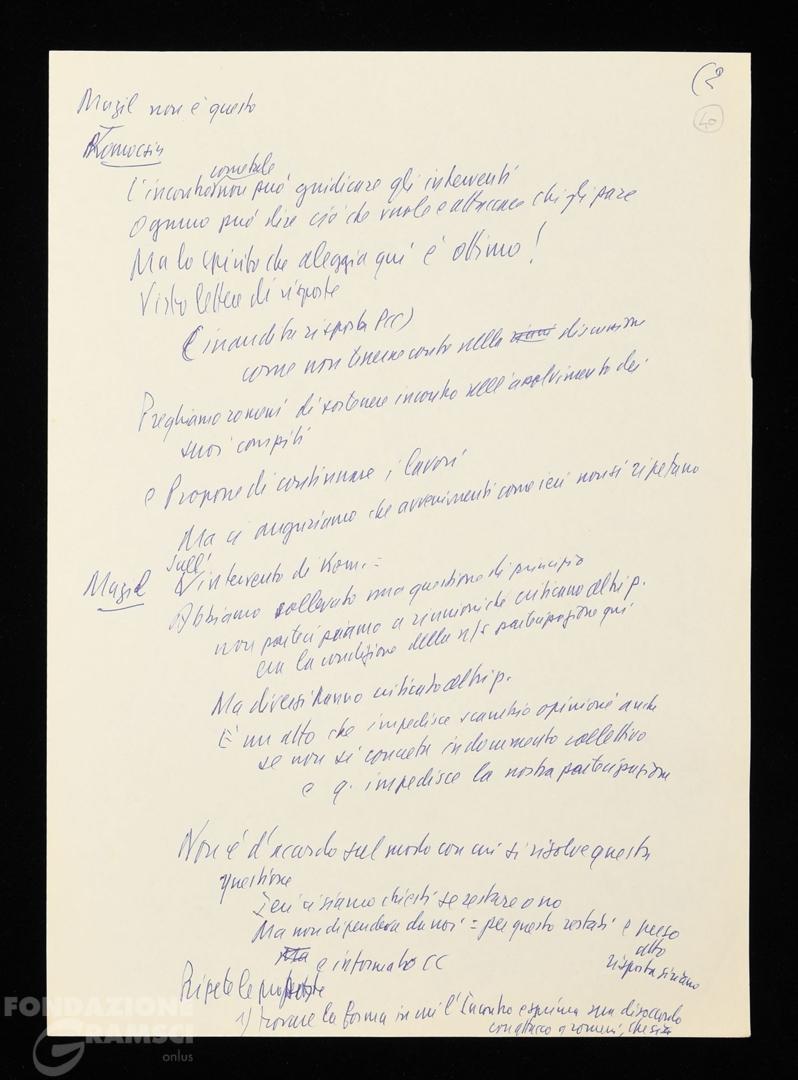 (2
40
Mizil non è questo
Komocsin
come tale
L'incontro non può giudicare gli interventi
Ognuno può dire ciò che vuole e attaccare chi gli pare
Ma lo spirito che aleggia qui è ottimo!
Visto lettera di risposte
(inaudita risposta PCC)
come non tenerne conto nella discussione
Preghiamo romeni di sostenere incontro nell'assolvimento dei
suoi compiti
e Propone di continuare i lavori
Ma ci auguriamo che avvenimenti come ieri non si ripetano
Sull'
intervento di Kom. =
Abbiamo sollevato una questione di principio
non partecipiamo a riunioni che criticano altri p.
era la condizione della n/s partecipazione qui
Ma diversi hanno criticato altri p.
E' un atto che impedisce scambio opinioni anche
se non si concreta in documento collettivo
e q. impedisce la nostra partecipazione
Non è d'accordo sul modo con cui si risolve questa
questione
Ieri ci siamo chiesti se restare o no
Ma non dipendeva da noi = per questo restati e preso
atto
risposta siriano
e informato CC
Ripete le proposte
1) trovare la forma in cui l'Incontro esprima suo disaccordo
con attacco a romeni, che sia
FONDAZIONE
GRAMSCI
onlus